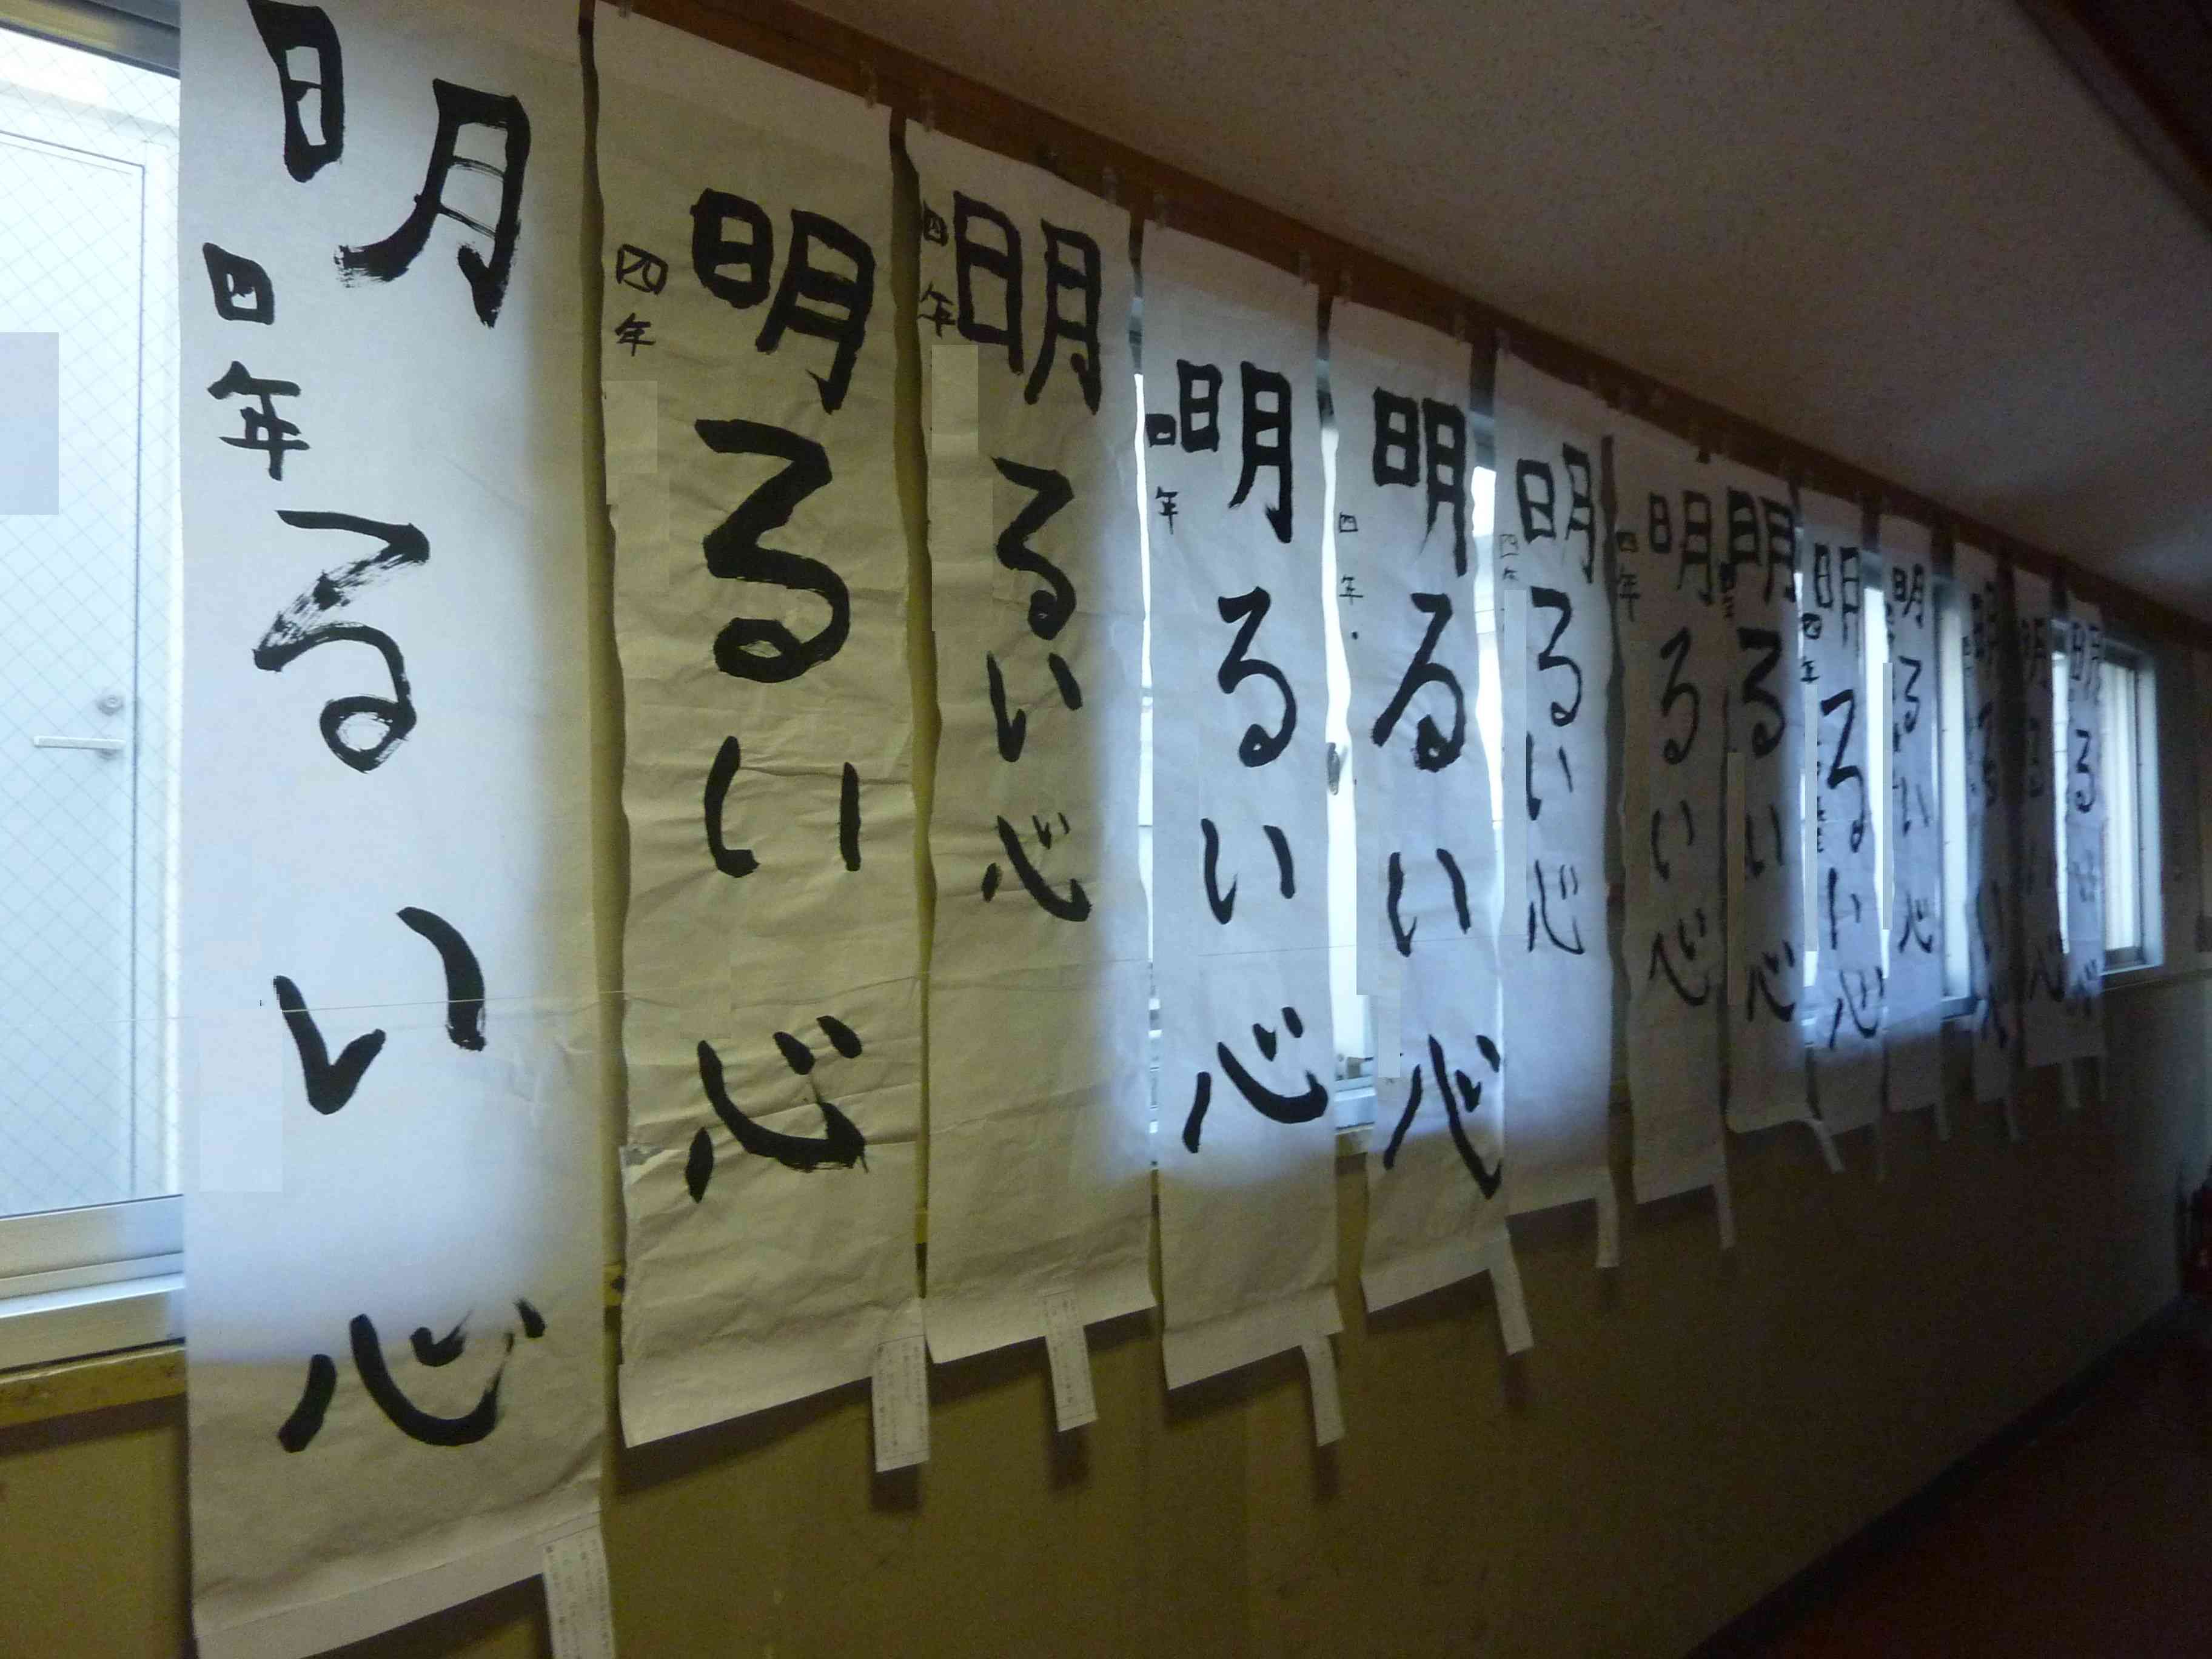 明るい心
四年
明るい心
四年
明るい心
四年
明るい心
四年
明るい心
四年
明るい心
四年
明るい心
四年
明るい心
明るい心
四年
明るい心
明るい心
明るい心
明るい心